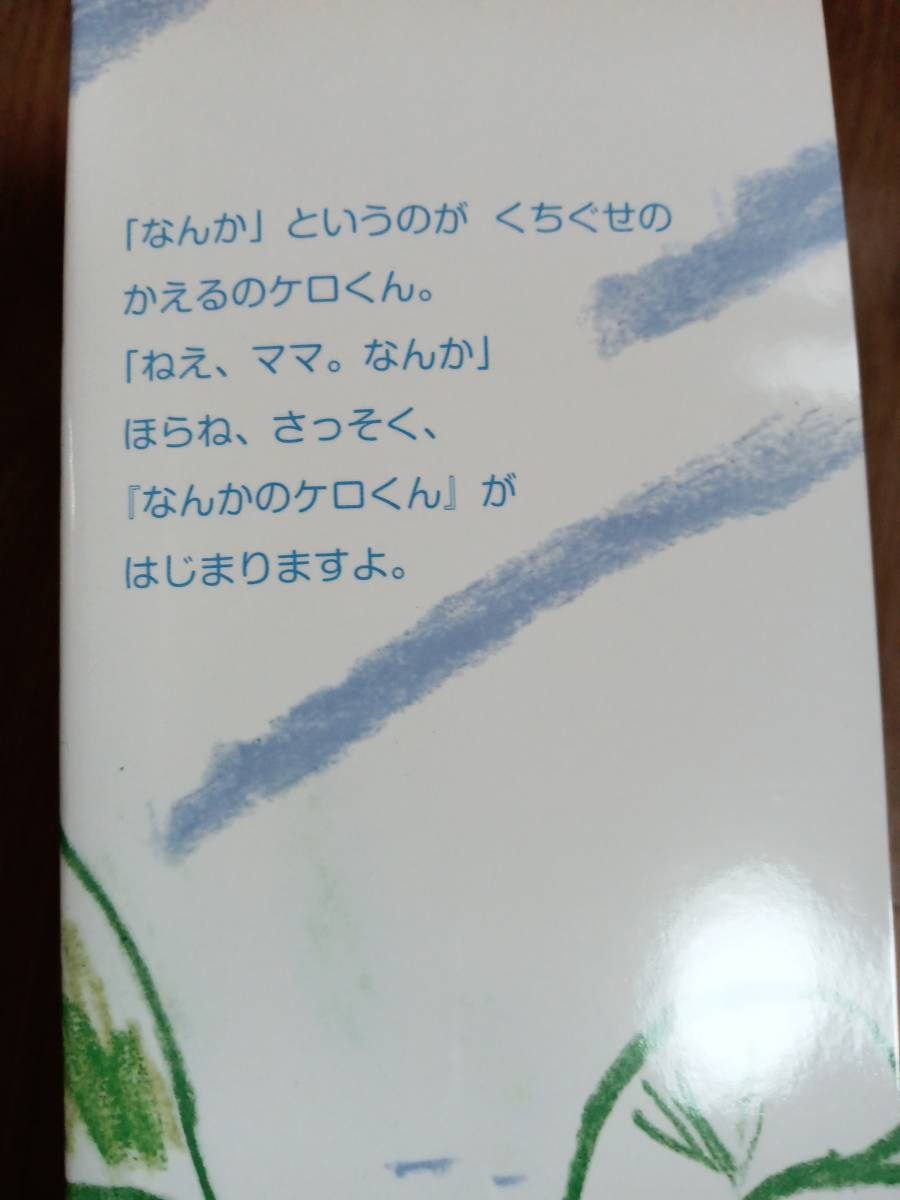 「なんか」というのが くちぐせの
かえるのケロくん。
「ねえ、ママ。なんか」
ほらね、さっそく、
『なんかのケロくん』が
はじまりますよ。